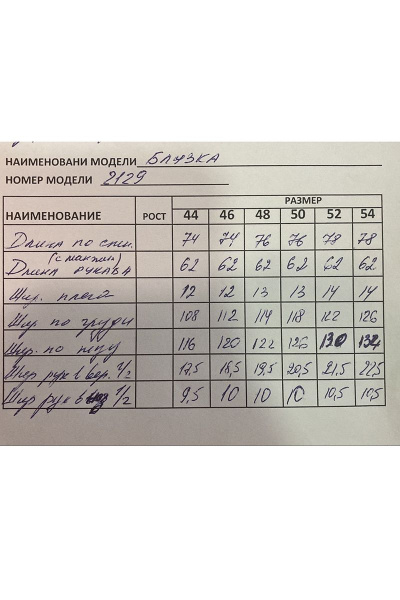 НАИМЕНОВАНИ МОДЕЛИ БЛУЗКА
НОМЕР МОДЕЛИ 2129
НАИМЕНОВАНИЕ РОСТ РАЗМЕР
44 46 48 50 52 54
Длина по спин. 74 74 76 76 78 78
(с манжет)
Длина рукава 62 62 62 62 62 62
Шир. плеча 12 12 13 13 14 14
Шир по груди 108 112 114 118 122 126
Шир. по низу 116 120 122 126 130 134
Шир рук в вер. 1/2 17,5 18,5 19,5 20,5 21,5 22,5
Шир рук в низ 1/2 9,5 10 10 10 10,5 10,5